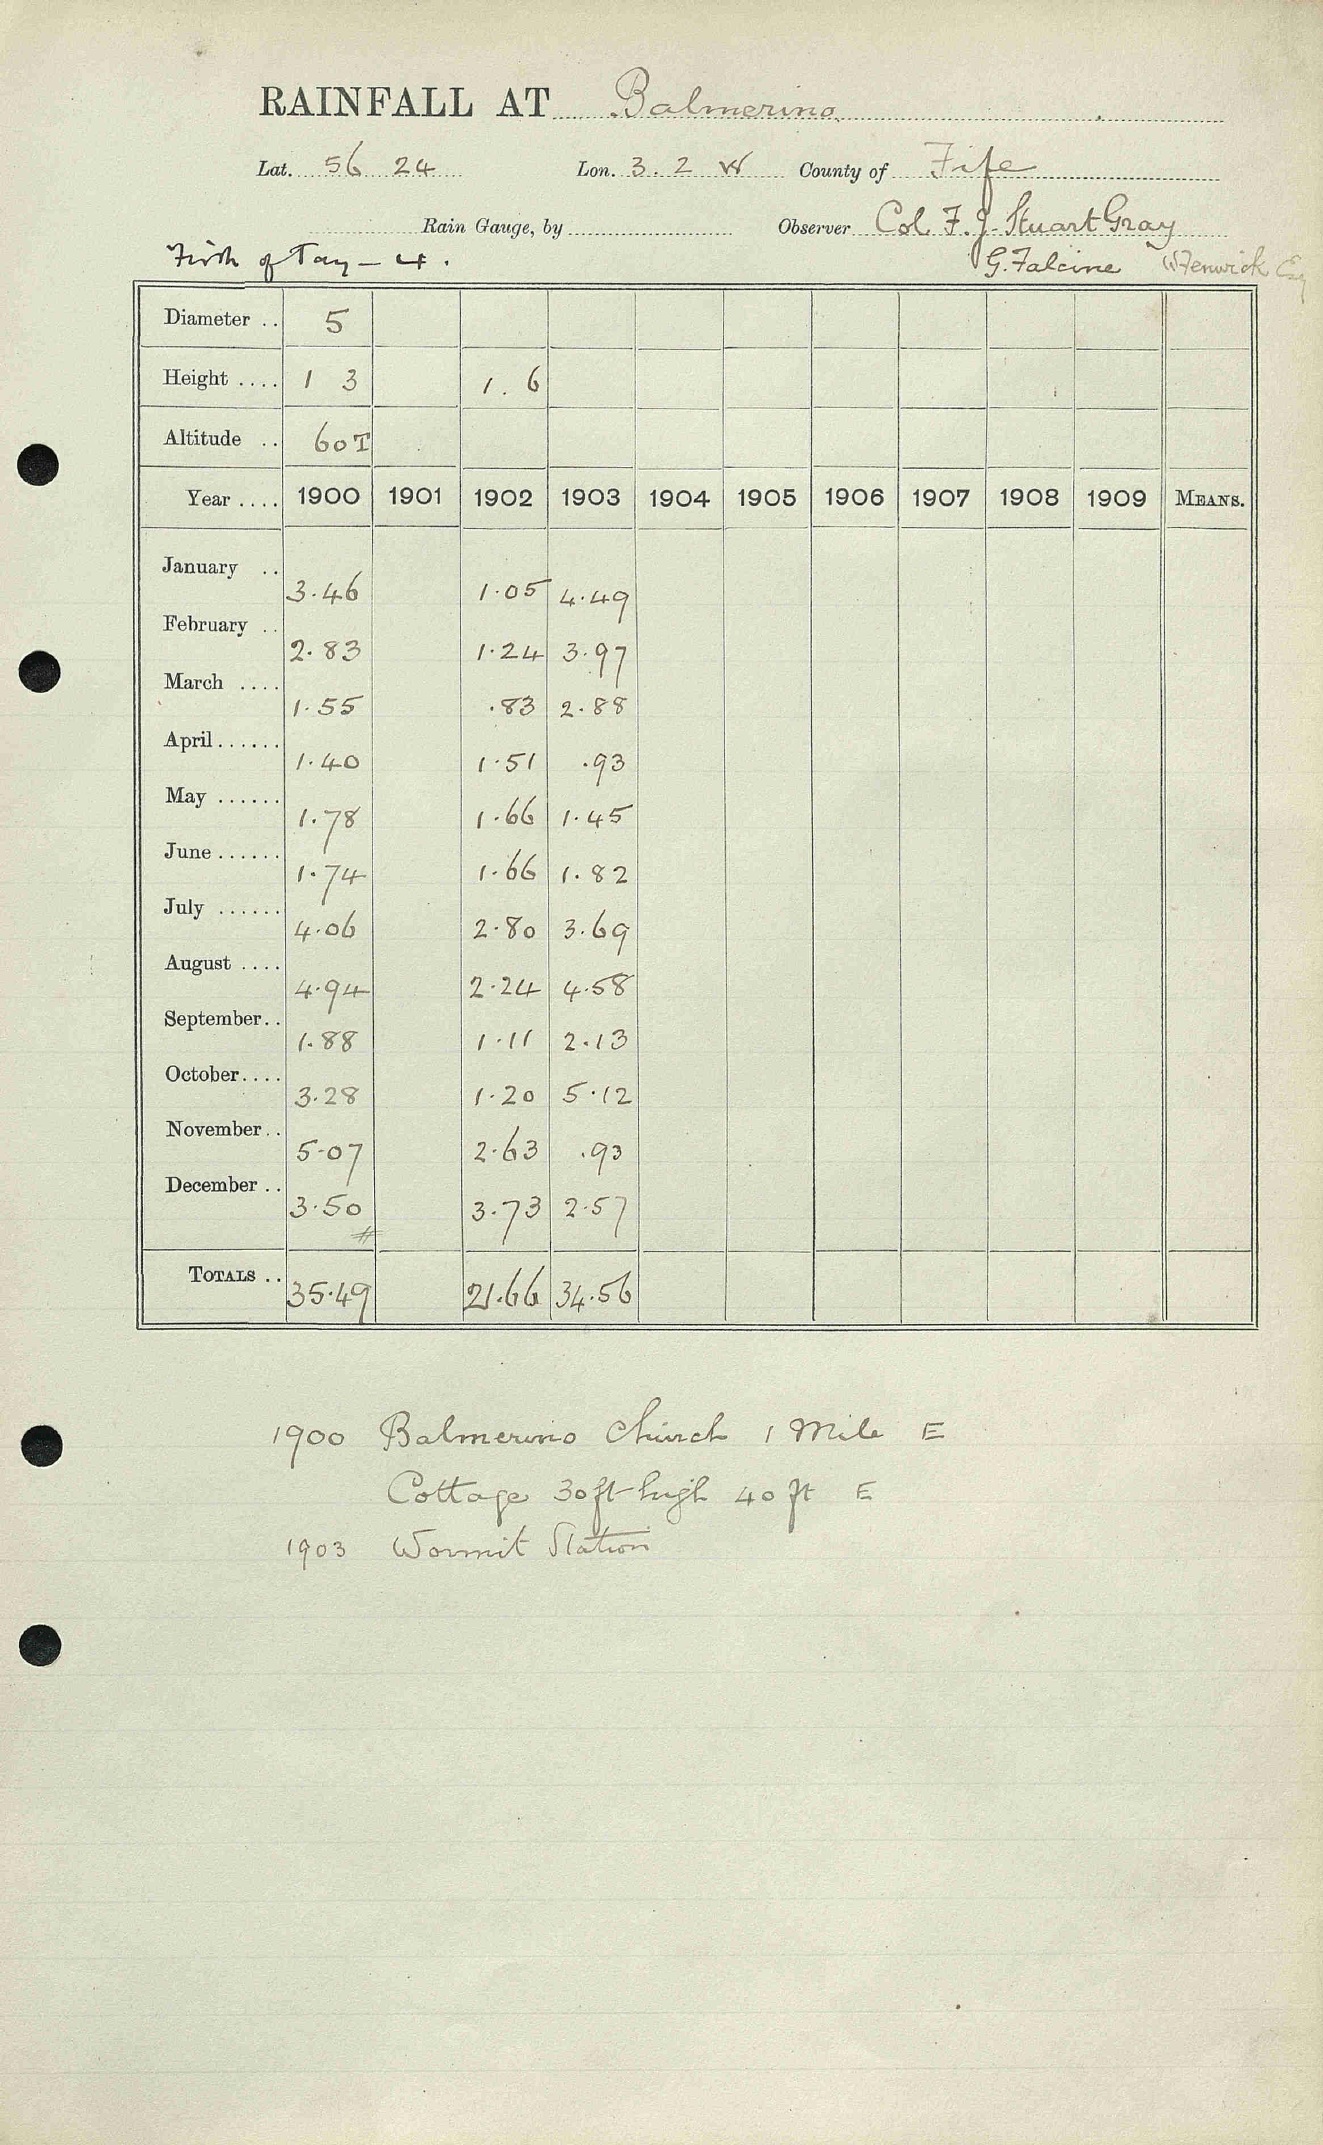 RAINFALL AT Balmerino
Lat. 56 24 Lon. 3. 2 W County of Fife
Rain Gauge, by Observer Col. F. J. Stuart Gray
Firth of Tay – 4. G. Falcine W Fenwick Esq
Diameter .. 5
Height .... 1 3 1. 6
Altitude .. 60 T
Year .... 1900 1901 1902 1903 1904 1905 1906 1907 1908 1909 MEANS.
January .. 3.46 1.05 4.49
February .. 2.83 1.24 3.97
March .... 1.55 .83 2.88
April...... 1.40 1.51 .93
May ...... 1.78 1.66 1.45
June...... 1.74 1.66 1.82
July ...... 4.06 2.80 3.69
August .... 4.94 2.24 4.58
September.. 1.88 1.11 2.13
October.... 3.28 1.20 5.12
November.. 5.07 2.63 .93
December .. 3.50 3.73 2.57
#
TOTALS .. 35.49 21.66 34.56
1900 Balmerino Church 1 Mile E
Cottage 30 ft high 40 ft E
1903 Wormit Station